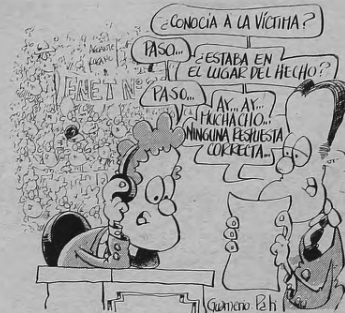 ¿CONOCÍA A LA VÍCTIMA?
PASO...
¿ESTABA EN
EL LUGAR DEL HECHO?
PASO...
AY... AY...
MUCHACHO..
NINGUNA RESPUESTA
CORRECTA...
ENET Nº